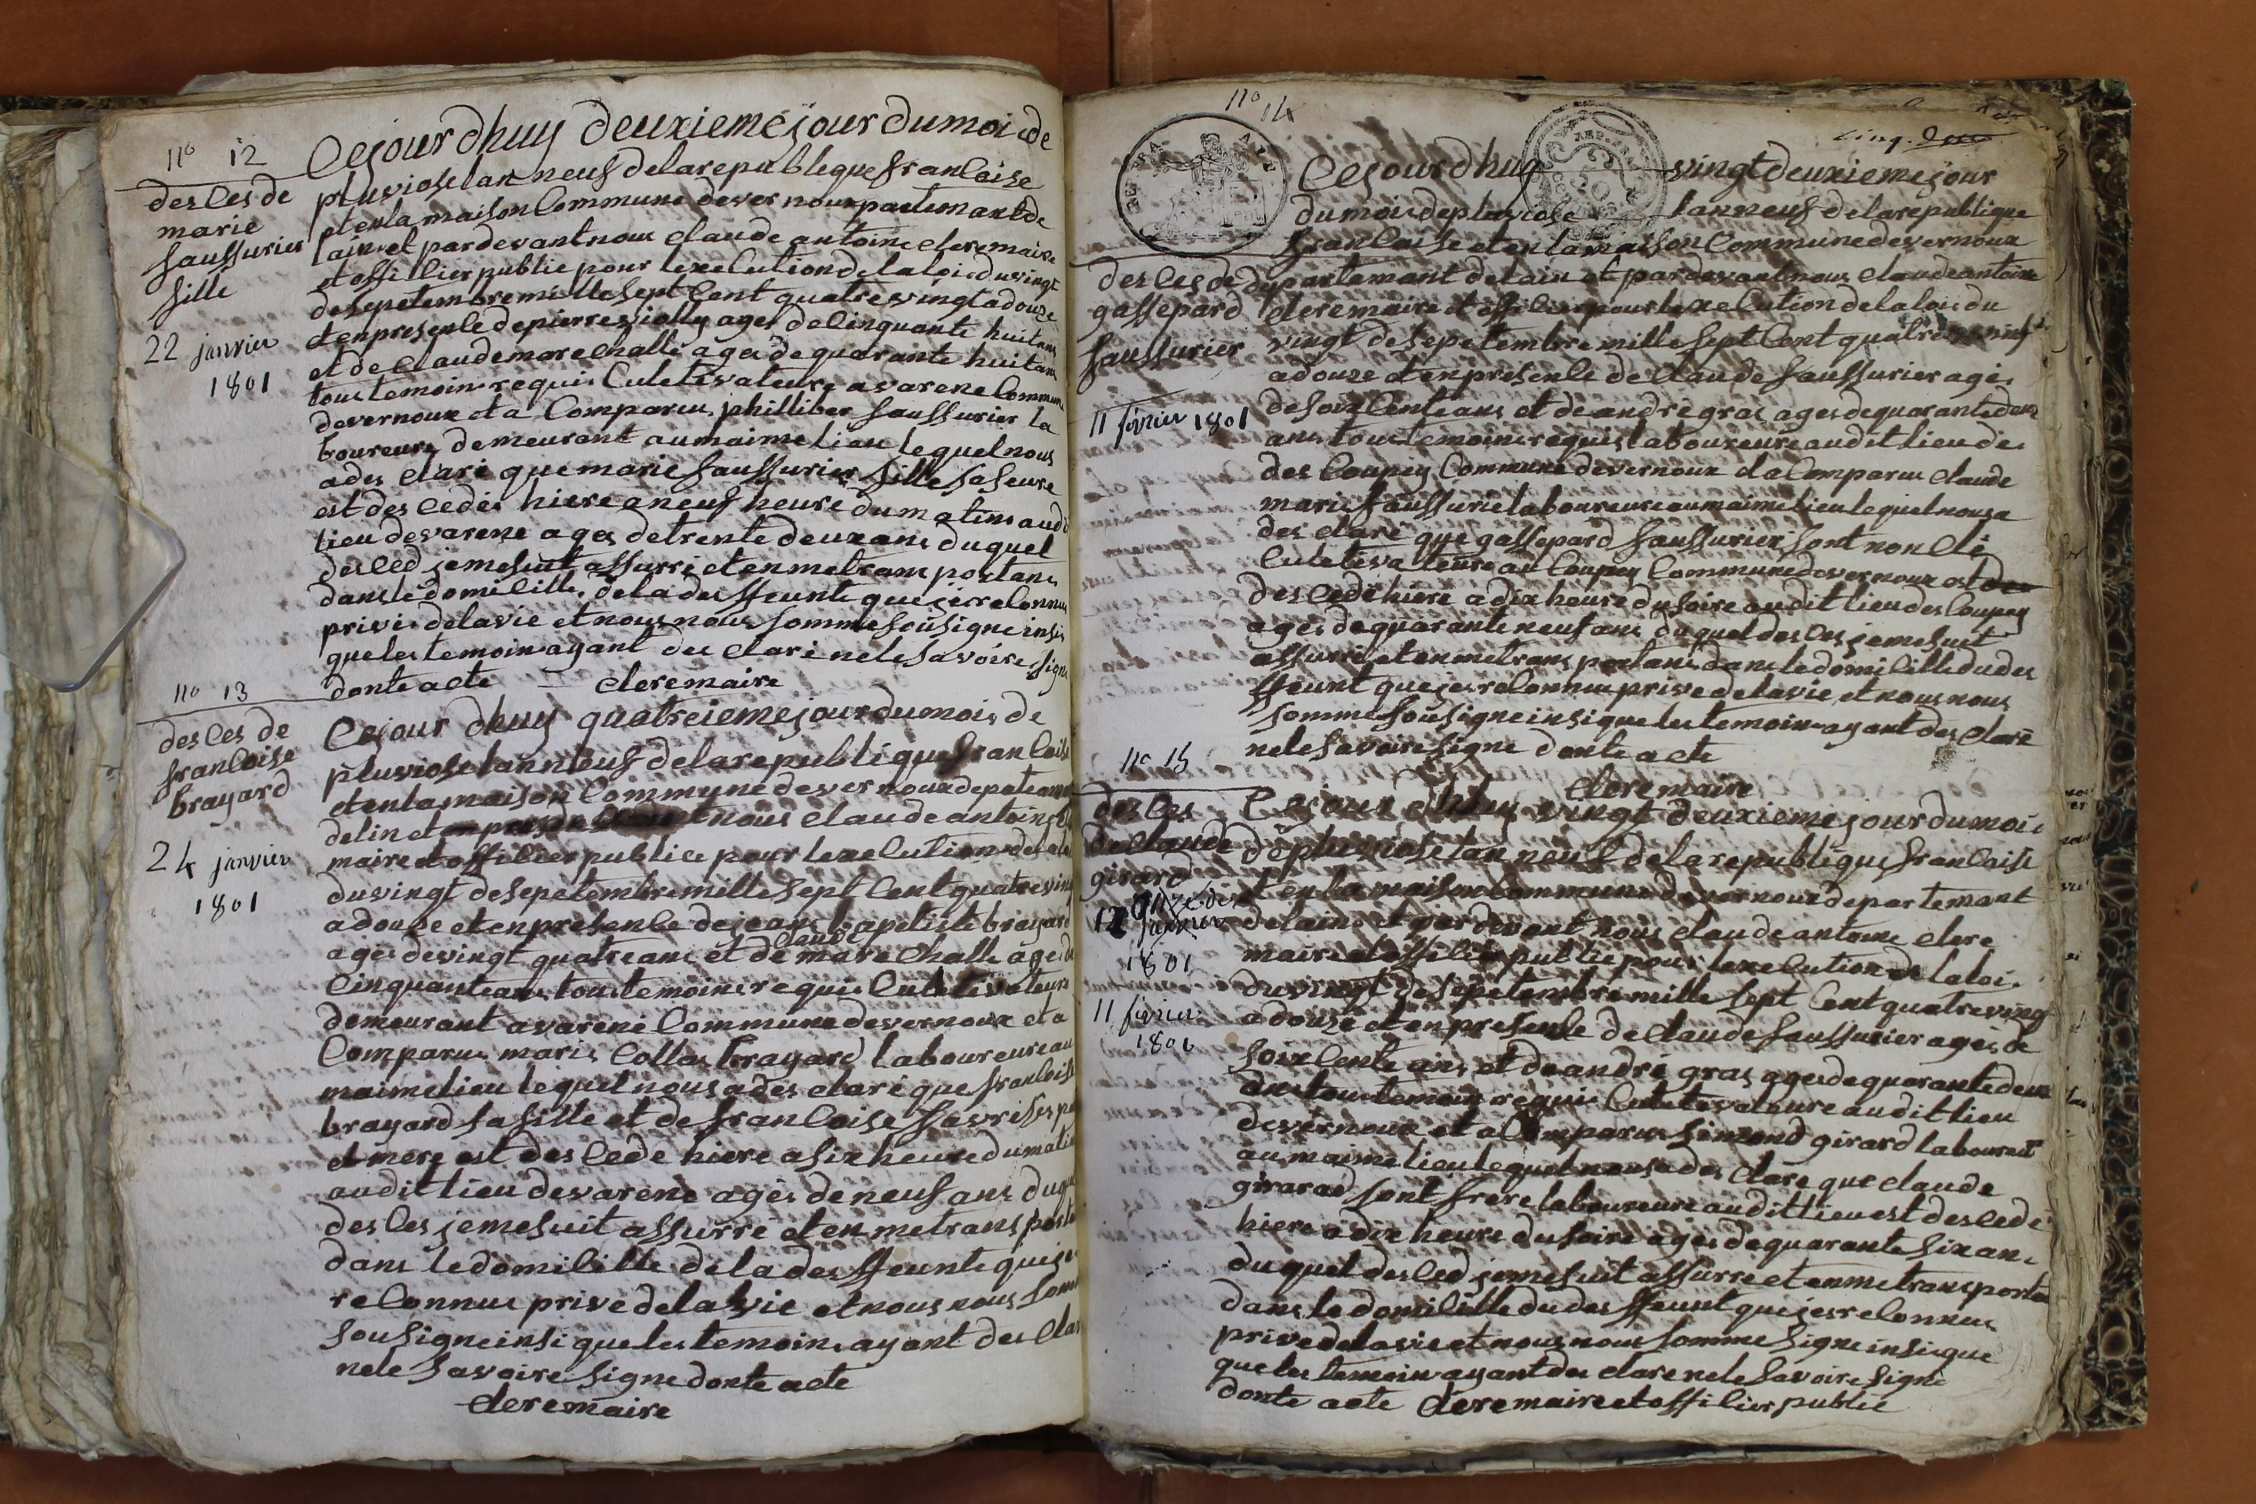 no 12
des Ces de
marie
saussurier
fille
22 janvier
1801
Cejourdhuy deuxieme jour du moi de
pluviose lan neuf de la republeque francoise
et en la maison Commune de vernoux partemant de
lain et par devant nous claude antoine clere maire
et offi lier public pour lexecution de la loi du vingt
de sepetembre mille sept Cent quatre vingt a douze
et en presence de pierre jolly ages de Cinquante huit ans
et de claude marechalle ages de quarante huit ans
tous temoins requis Culetivateurs a varene Commune
de vernoux et a Comparus philliber saussurier la
boureure demeurant au maime lieu le quel nous
a des claré que marie saussurier fille sa seure
est des cedes hiere a neuf heure du matins audi
lieu de varene ages de trente deux ans duquel
des ced je me suit assurré et en me trans portans
dans le domicille de la des ffeunte que jes reconnus
privée de la vie et nous nous somme sousigne insi
que les temoin ayant des claré ne le savoire signe
donte acte clere maire
no 13
des Ces de
francoise
brayard
24 janvier
1801
Cejour dhuy quatreieme jour du mois de
pluviose lan neuf de la republique francoise
et en la maison Commune de vernoux depatemant
de lin et nous claude antoine
maire et offilier publice pour lexecution de
du vingt de sepetembre mille sept Cent quatre vin
a douze et en presence de jean bapetiste brayard
ages de vingt quatre ans et de claude marechalle ages de
Cinquante ans tous temoins requis Culetivateurs
demeurant a varene Commune de vernoux et a
Comparus maris Collas brayard laboureure au
maime lieu lequel nous a des claré que francoise
brayard sa fille et de francoise favrises
et mere est des cede hiere a six heure du matin
audit lieu de varene ages de neuf ans duquel
des Ces je me suit assurré et en me trans porta
dans le domicille de la des ffeunte que jes
reconnus privé de la vie et nous nous somme
sousigne insi que les temoins ayant des claré
ne le savoire signe donte acte
clere maire
no 14
cinq.
des Ces de
gassepard
saussurier
11 fevrier 1801
Cejourdhuy vingt deuxieme jour
du mois de pluviose lan neuf de la republique
francoise et en la maison Commune de vernoux
departemant de lain et par devant nous claude antoine
clere maire et offilier pour lexecution de la loi du
vingt de sepetembre mille sept Cent quatre vingt
a douze et en presence de claude saussurier ages
de soix Cente ans et de andré gras ages de quarante deux
ans tous temoins requis laboureure audit lieu de
des Coupey Commune de vernoux et a Comparus claude
marie saussurie laboureure au maime lieu lequel nous a
des claré que gassepard saussurier sont noncle
Culetivateure au Coupey Commune de vernoux est
des cede hiere a dix heure du soire audit lieu des Coupey
ages de quarante neuf ans duquel des ces je me suit
assurré et en me trans portans dans le domicille du des
ffeunt que jes reconnus prive de la vie et nous nous
somme sousigne insi que les temoin ayant des claré
ne le savoire signe donte acte
clere maire
no 15
des Ces
de Claude
girard
12 janvier
1801
11 fevrier
1801
Cejour dhuy vingt deuxieme jour du mois
de pluviose lan neuf de la republique francoise
et en la maison Commune de vernoux departemant
de lain et par devant nous claude antoine clere
maire et offilier publie pour lexecution de la loi
du vingt de sepetembre mille sept Cent quatre ving
a douze et en presence de claude saussurier ages de
soix Cente ans et de andré gras ages de quarante deux
ans tous temoin requis Culetivateure audit lieu
de vernoux et a Comparus simond girard laboureur
au maime lieu lequel nous a des claré que claude
girarad sont frere laboureure audit lieu est des cede
hiere a dix heure du soire ages de quarante six ans
du quel des ced je me suit assurre et en me trans portan
dans le domicille du des ffeunt que jes reconnus
prive de la vie et nous nous somme signe insi que
que les temoin ayant des claré ne le savoire signe
donte acte clere maire et offilier publie